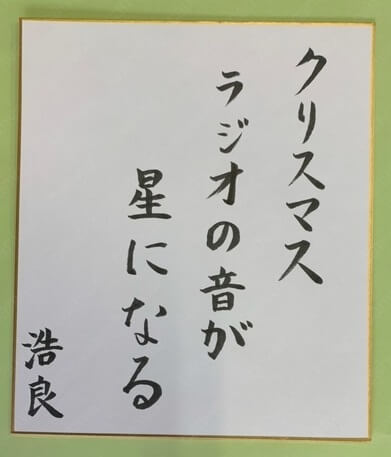 クリスマス
ラジオの音が
星になる
浩良